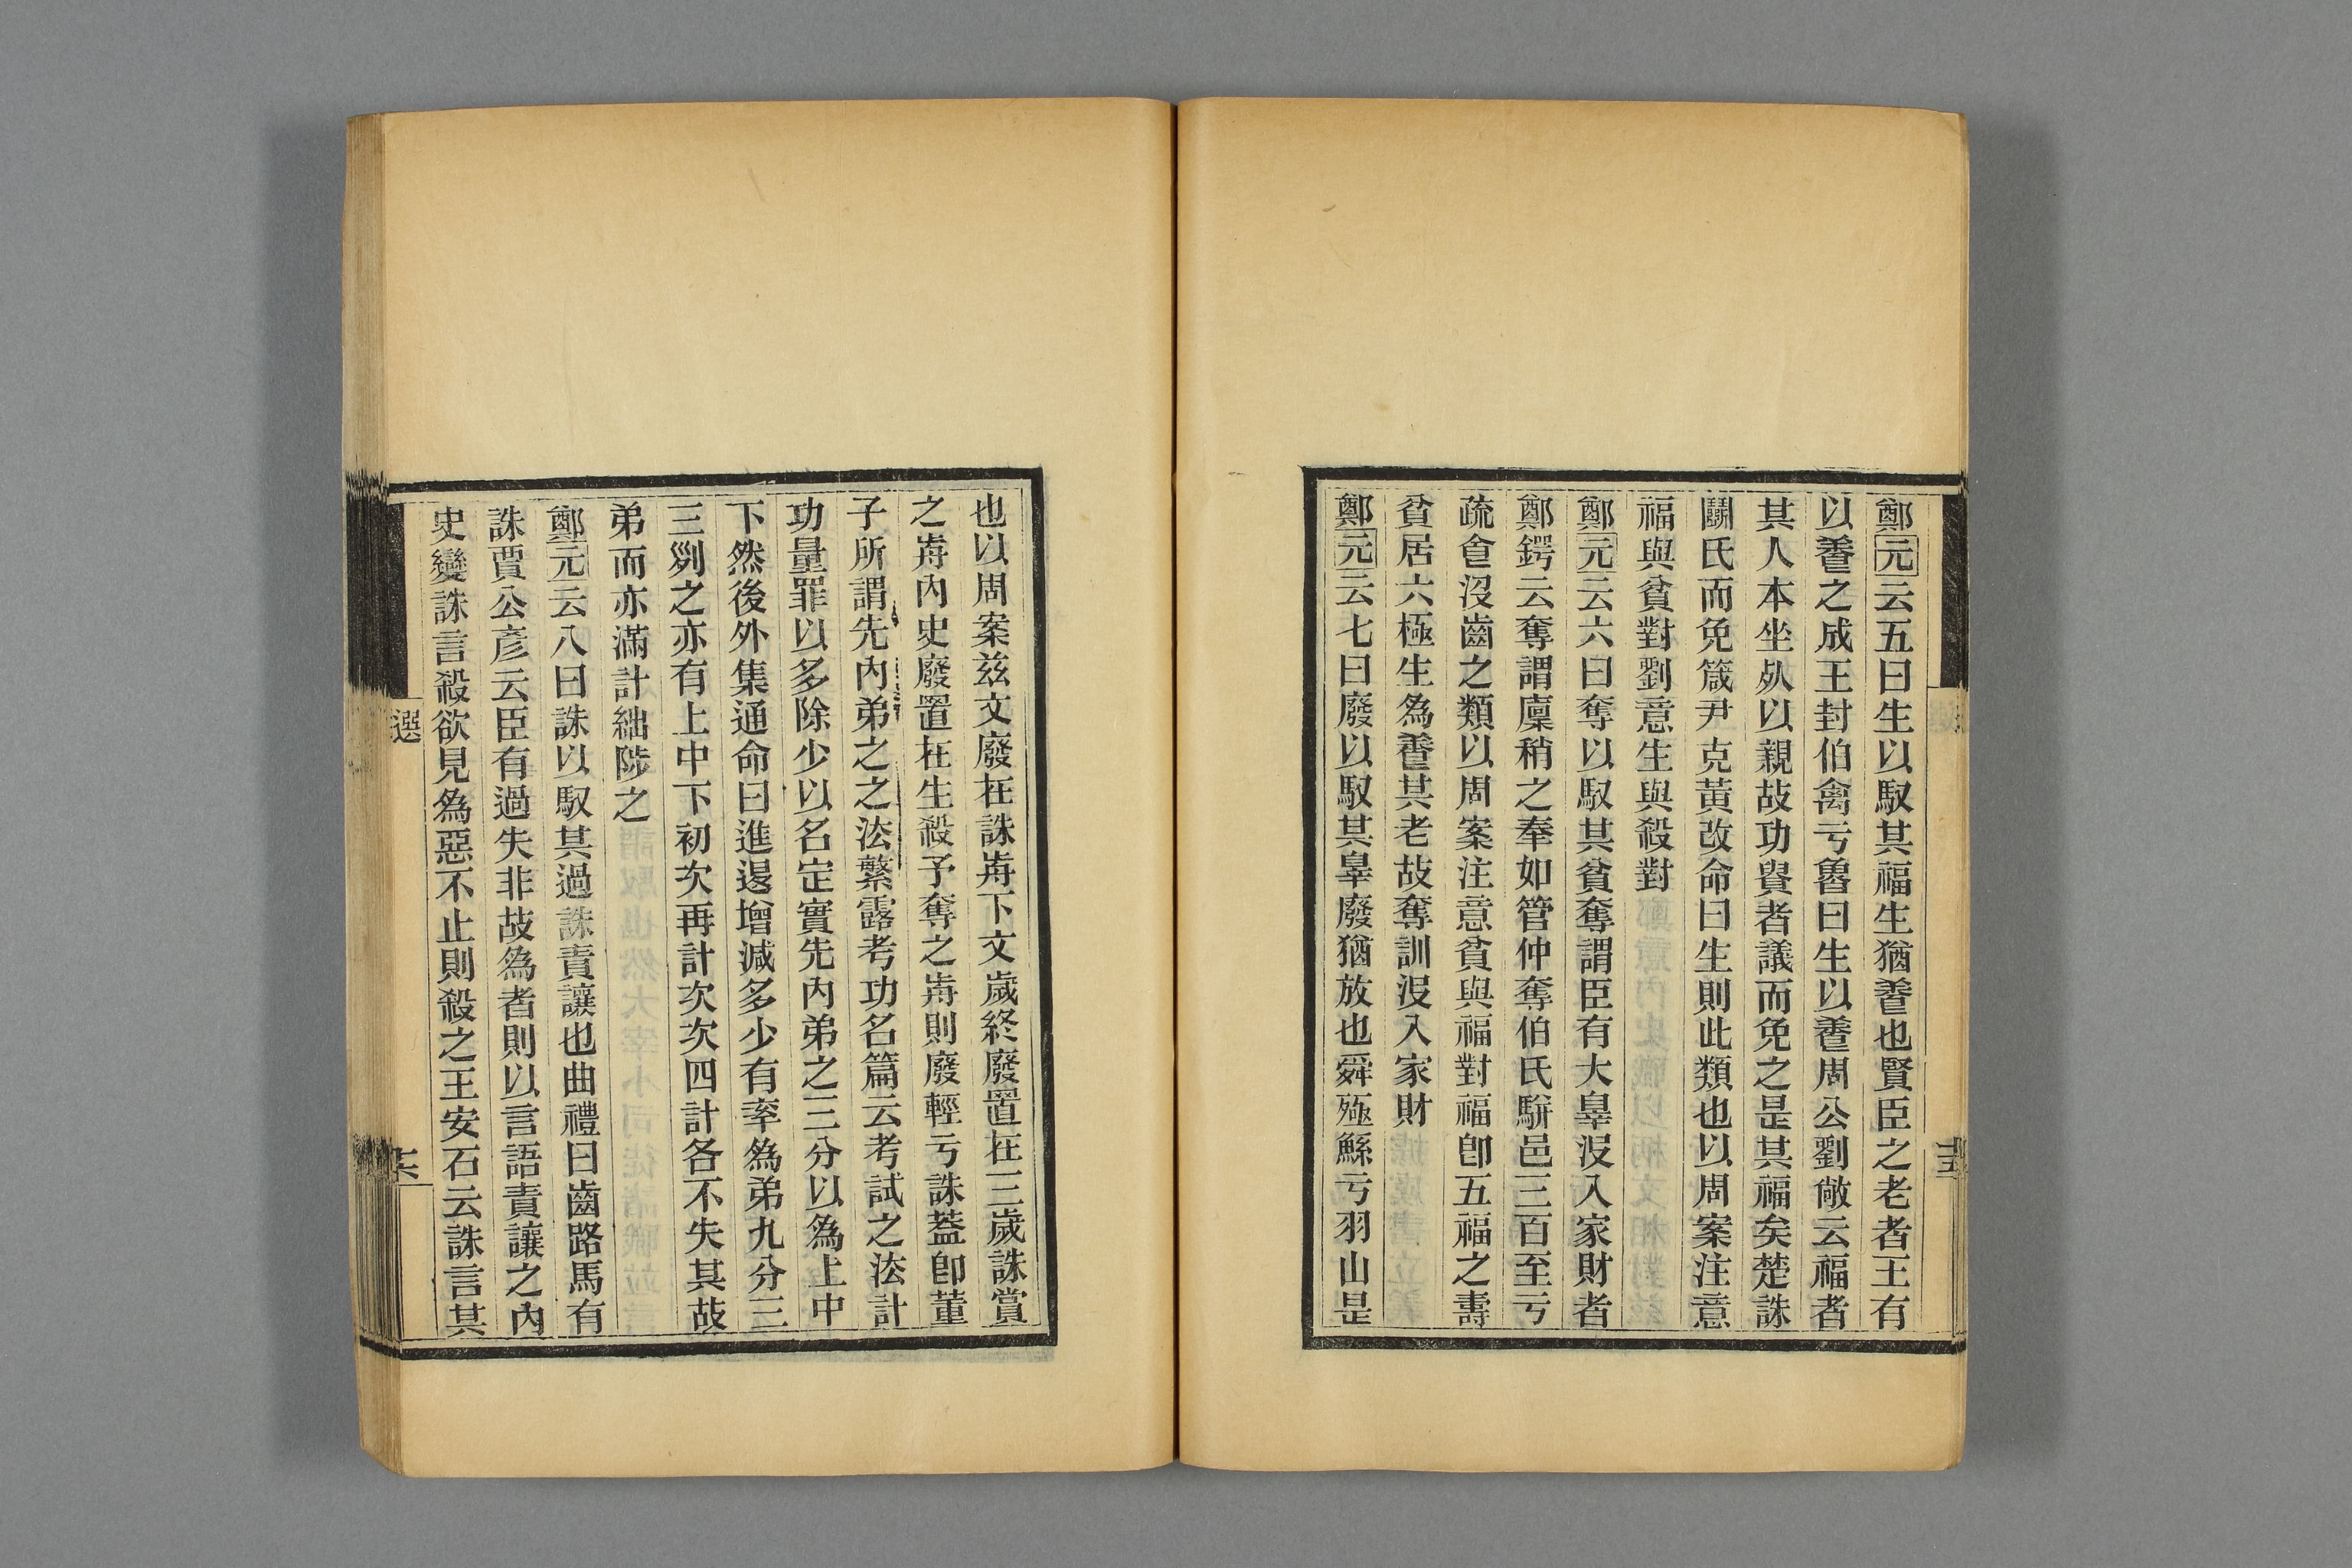 鄭元云五曰生以馭其福生猶養也賢臣之老者王有
以養之成王封伯禽亏魯曰生以養周公劉敞云福者
其人本坐㱙以親故功貴者議而免之是其福矣楚誅
鬬氏而免箴尹克黃改命曰生則此類也以周案注意
福與貧對劉意生與殺對
鄭元云六曰奪以馭其貧奪謂臣有大辠沒入家財者
鄭鍔云奪謂廩稍之奉如管仲奪伯氏駢邑三百至亏
疏食沒齒之類以周案注意貧與福對福卽五福之壽
貧居六極生爲養其老故奪訓沒入家財
鄭元云七曰廢以馭其辠廢猶放也舜殛鯀亏羽山是
也以周案兹文廢在誅歬下文歲終廢置在三歲誅賞
之歬內史廢置在生殺予奪之歬則廢輕亏誅蓋卽董
子所謂先內弟之之法繁露考功名篇云考試之法計
功量罪以多除少以名定實先內弟之三分以爲上中
下然後外集通命曰進退增減多少有率爲弟九分三
三列之亦有上中下初次再計次次四計各不失其故
弟而亦滿計絀陟之
鄭元云八曰誅以馭其過誅責讓也曲禮曰齒路馬有
誅賈公彥云臣有過失非故爲者則以言語責讓之內
史變誅言殺欲見爲惡不止則殺之王安石云誅言其
選